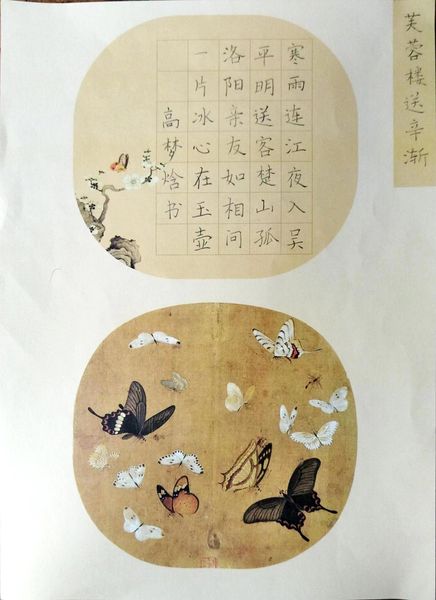 芙蓉楼送辛渐
寒雨连江夜入吴
平明送客楚山孤
洛阳亲友如相问
一片冰心在玉壶
高梦焓书